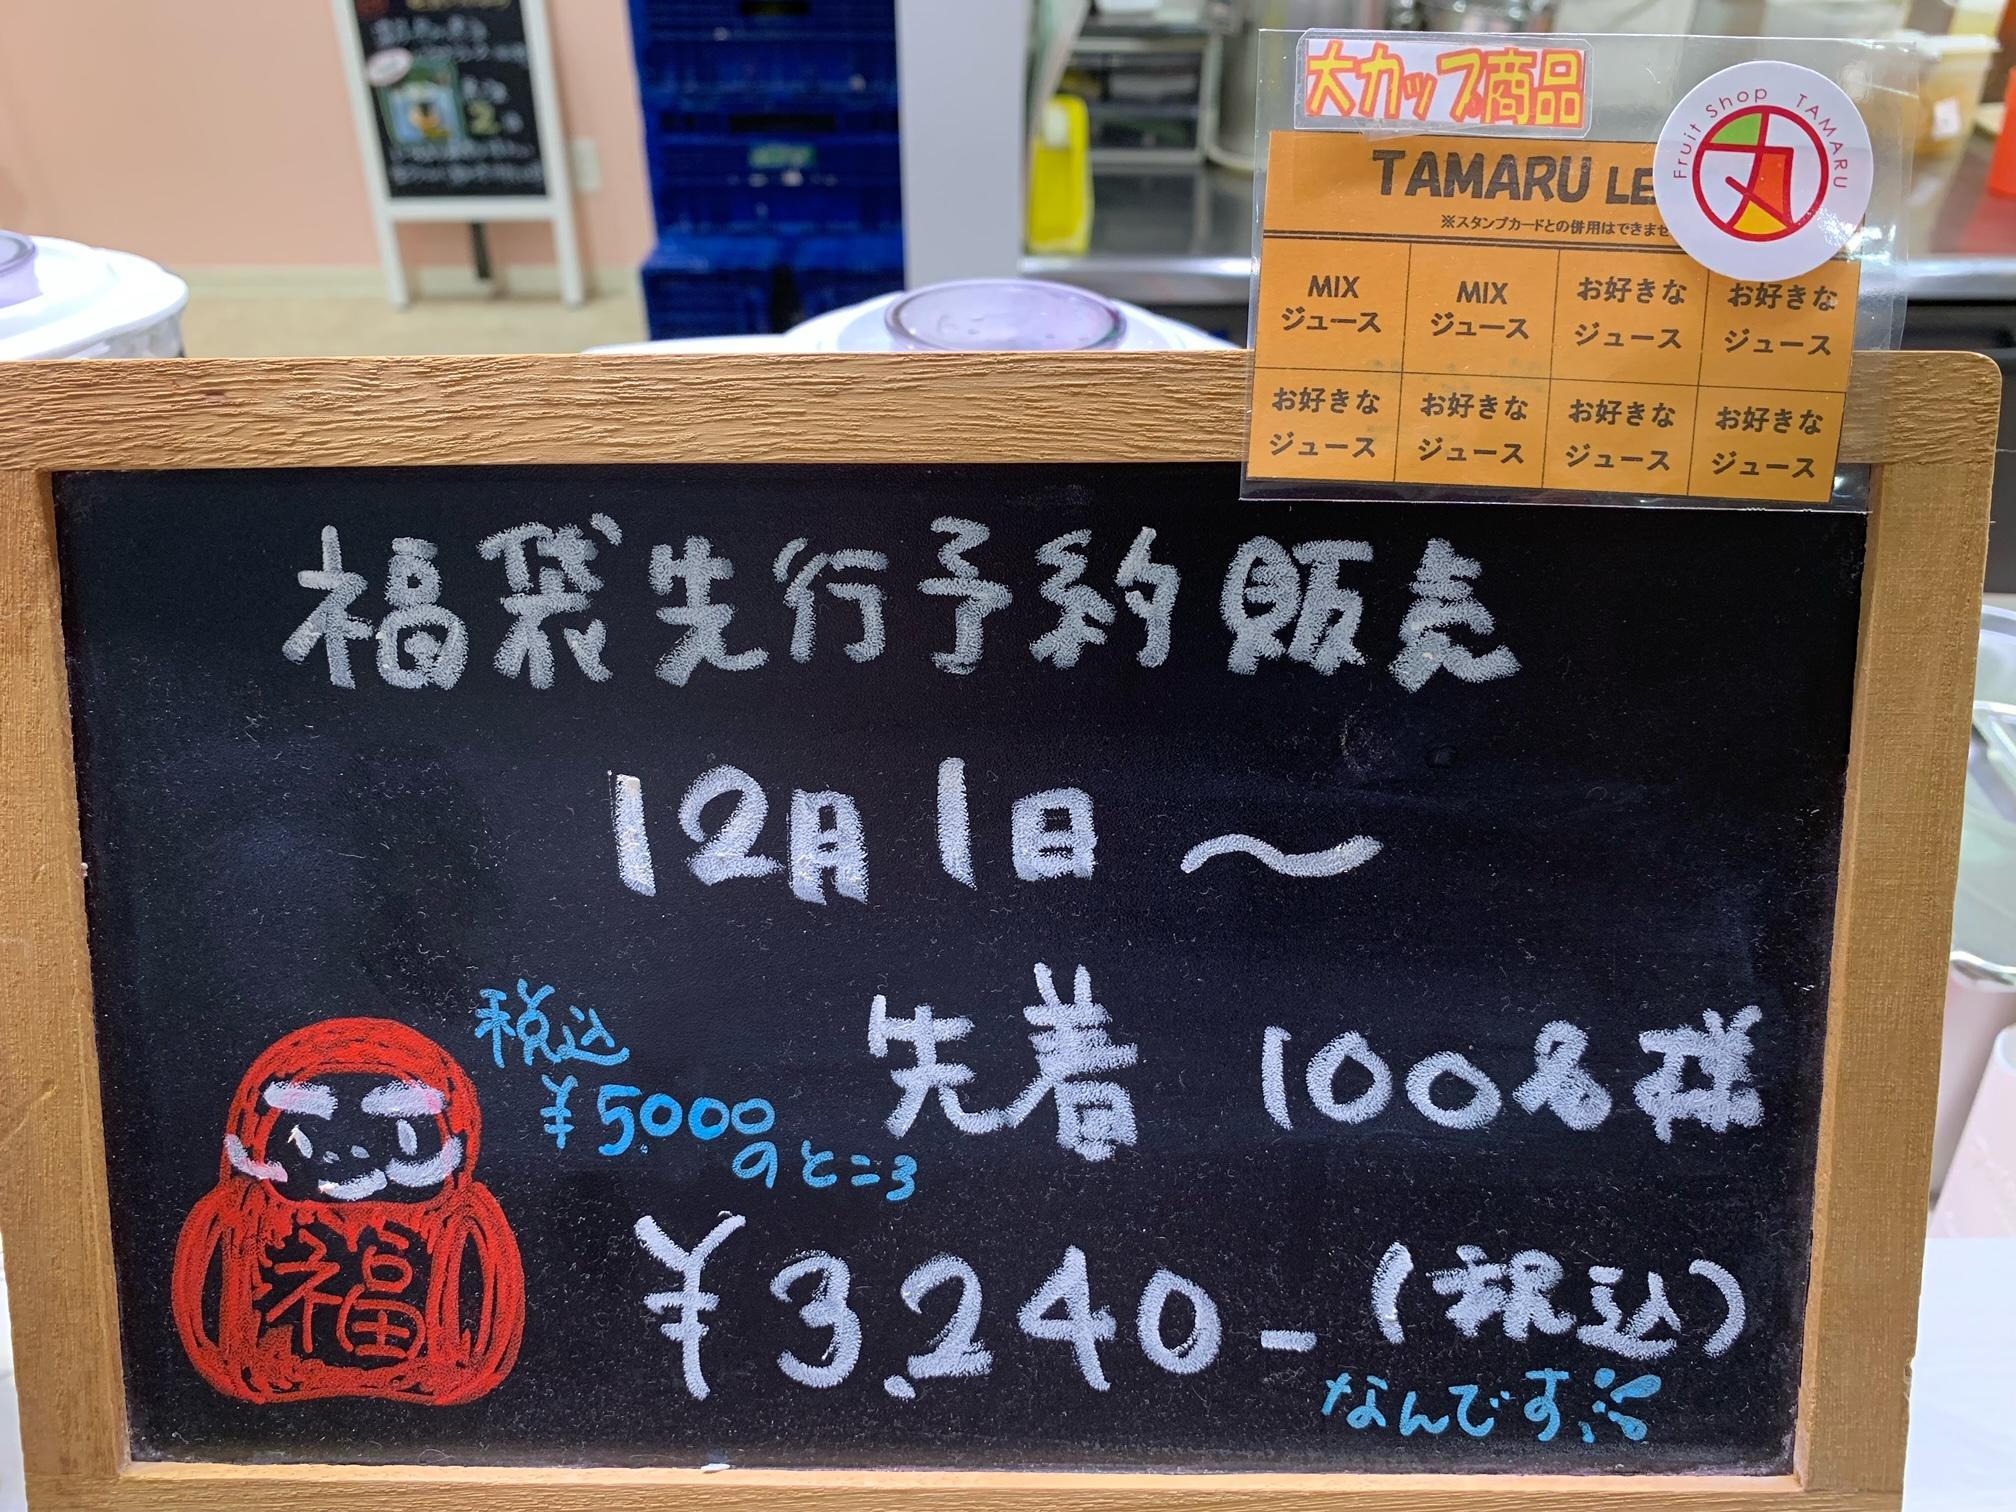 大カップ商品
Fruit Shop TAMARU
TAMARU LE
※スタンプカードとの併用はできませ
MIX ジュース
MIX ジュース
お好きな ジュース
お好きな ジュース
お好きな ジュース
お好きな ジュース
お好きな ジュース
お好きな ジュース
福袋先行予約販売
12月1日〜
先着 100名様
税込
¥5000
のところ
¥3,240-(税込)
なんです!!
福